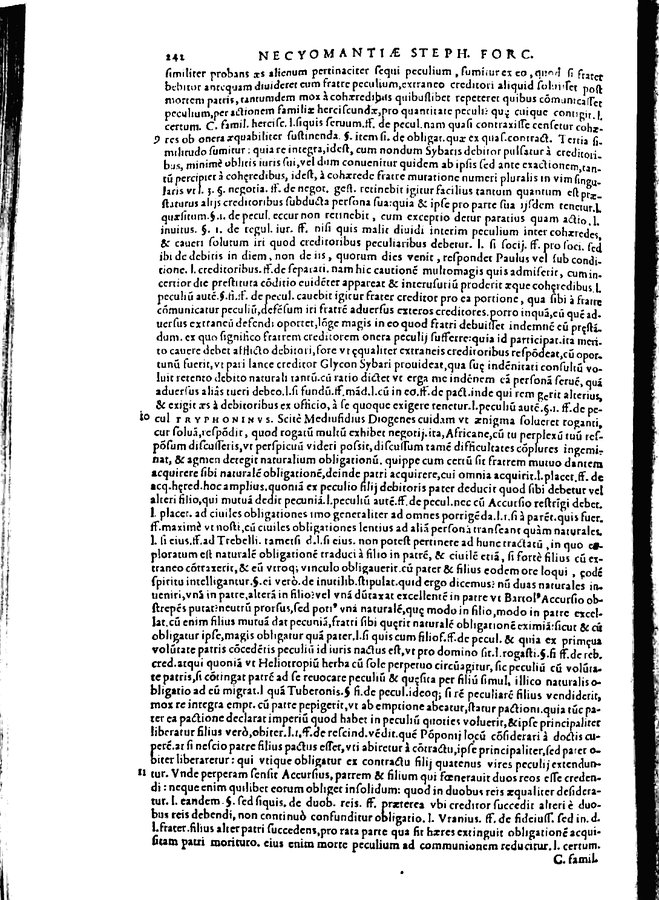 242 NECYOMANTIÆ STEPH. FORC.
similiter probans æs alienum pertinaciter sequi peculium, sumitur ex eo, quod si frater
debitor antequam diuideret cum fratre peculium, extraneo creditori aliquid soluisset post
mortem patris, tantumdem mox à cohæredibus quibuslibet repeteret quibus cōmunicasset
peculium, per actionem familiæ herciscundæ, pro quantitate peculij quę cuique contigit. l.
certum. C. famil. hercisc. l. si quis seruum. ff. de pecul. nam quasi contraxisse censetur cohæ-
9 res ob onera æquabiliter sustinenda. §. item si. de obligat. quæ ex quasi contract. Tertia si-
militudo sumitur: quia re integra, idest, cum nondum Sybaris debitor pulsatur à creditori-
bus, minimè oblitis iuris sui, vel dum conuenitur quidem ab ipsis sed ante exactionem, tan-
tū percipiet à cohęredibus, idest, à cohærede fratre mutatione numeri pluralis in vim singu-
laris vt l. 3. §. negotia. ff. de negot. gest. retinebit igitur facilius tantum quantum est præ-
staturus alijs creditoribus subducta persona sua: quia & ipse pro parte sua ijsdem tenetur. l.
quæsitum. §. 1. de pecul. eccur non retinebit, cum exceptio detur paratius quam actio. l.
inuitus. §. 1. de regul. iur. ff. nisi quis malit diuidi interim peculium inter cohæredes,
& caueri solutum iri quod creditoribus peculiaribus debetur. l. si socij. ff. pro soci. sed
ibi de debitis in diem, non de iis, quorum dies venit, respondet Paulus vel sub condi-
tione. l. creditoribus. ff. de separati. nam hic cautionē multo magis quis admiserit, cum in-
certior die præstitura cōditio euidēter appareat & interusurū proderit æque cohęredibus. l.
peculiū autē. §. fi. ff. de pecul. cauebit igitur frater creditor pro ea portione, qua sibi à fratre
cōmunicatur peculiū, defēsum iri fratrē aduersus exteros creditores. porro inquā, cū quē ad-
uersus extraneū defendi oportet, lōge magis in eo quod fratri debuisset indemnē cū pręstā-
dum. ex quo significo fratrem creditorem onera peculij sufferre: quia id participat. ita meri-
to cauere debet afflicto debitori, fore vt ęqualiter extraneis creditoribus respōdeat, cū opor-
tunū fuerit, vt pari lance creditor Glycon Sybari prouideat, qua suę indēnitati consultū vo-
luit retento debito naturali tantū. cū ratio dictet vt erga me indēnem cā personā seruē, quā
aduersus aliās tueri debeo. l. si fundū. ff. mād. l. cū in eo. ff. de pact. inde qui rem gerit alterius,
& exigit æs à debitoribus ex officio, à se quoque exigere tenetur. l. peculiū autē. §. 1. ff. de pe-
10 cul TRYPHONINVS. Scitè Mediusfidius Diogenes cuidam vt ænigma solueret roganti,
cur soluā, respōdit, quod rogatū multū exhibet negotij. ita, Africane, cū tu perplexū tuū res-
pōsum discusseris, vt perspicuū videri possit, discussum tamē difficultates cōplures ingemi-
nat, & agmen detegit naturalium obligationū. quippe cum certū sit fratrem mutuo dantem
acquirere sibi naturalē obligationē, deinde patri acquirere, cui omnia acquirit. l. placet. ff. de
acq. hęred. hoc amplius. quoniā ex peculio filij debitoris pater deducit quod sibi debetur vel
alteri filio, qui mutuā dedit pecuniā. l. peculiū autē. ff. de pecul. nec cū Accursio restrīgi debet.
l. placet. ad ciuiles obligationes imo generaliter ad omnes porrigēda. l. 1. si à parēt. quis fuer.
ff. maximè vt nosti, cū ciuiles obligationes lentius ad aliā personā transeant quàm naturales.
l. si eius. ff. ad Trebelli. tametsi d. l. si eius. non potest pertinere ad hunc tractatū, in quo ex-
ploratum est naturalē obligationē traduci à filio in patrē, & ciuilē etiā, si fortè filius cū ex-
traneo cōtraxerit, & eū vtroq; vinculo obligauerit. cū pater & filius eodem ore loqui, eodē
spiritu intelligantur. §. ei verò. de inutilib. stipulat. quid ergo dicemus? nū duas naturales in-
ueniri, vnā in patre, alterā in filio? vel vnā dūtaxat excellentē in patre vt Bartol⁹ Accursio ob-
strepēs putat? neutrū prorsus, sed poti⁹ vnā naturalē, quę modo in filio, modo in patre excel-
lat. cū enim filius mutuā dat pecuniā, fratri sibi quęrit naturalē obligationē eximiā: sicut & cū
obligatur ipse, magis obligatur quā pater. l. si quis cum filiof. ff. de pecul. & quia ex primæua
volūtate patris cōcedētis peculiū id iuris nactus est, vt pro domino sit. l. rogasti. §. si ff. de reb.
cred. atqui quoniā vt Heliotropiū herba cū sole perpetuo circūagitur, sic peculiū cū volūta-
te patris, si cōtingat patrē ad se reuocare peculiū & quęsita per filiū simul, illico naturalis o-
bligatio ad eū migrat. l quā Tuberonis. § fi. de pecul. ideoq; si rē peculiarē filius vendiderit,
mox re integra empt. cū patre pepigerit, vt ab emptione abeatur, statur pactioni. quia tūc pa-
ter ea pactione declarat imperiū quod habet in peculiū quoties voluerit, & ipse principaliter
liberatur filius verò, obiter. l. 1. ff. de rescind. vēdit. quē Pōponij locū cōsiderari à doctis cu-
perē. at si nescio patre filius pactus esset, vti abiretur à cōtractu, ipse principaliter, sed pater o-
biter liberaretur: qui vtique obligatur ex contractu filij quatenus vires peculij extendun-
11 tur. Vnde perperam sensit Accursius, patrem & filium qui fœnerauit duos reos esse creden-
di: neque enim quilibet eorum obliget insolidum: quod in duobus reis æqualiter desidera-
tur. l. eandem. §. sed si quis. de duob. reis. ff. præterea vbi creditor succedit alteri è duo-
bus reis debendi, non continuò confunditur obligatio. l. Vranius. ff. de fideiuss. sed in. d.
l. frater. filius alter patri succedens, pro rata parte qua sit hæres extinguit obligationē acqui-
sitam patri morituro. eius enim morte peculium ad communionem reducitur. l. certum.
C. famil.